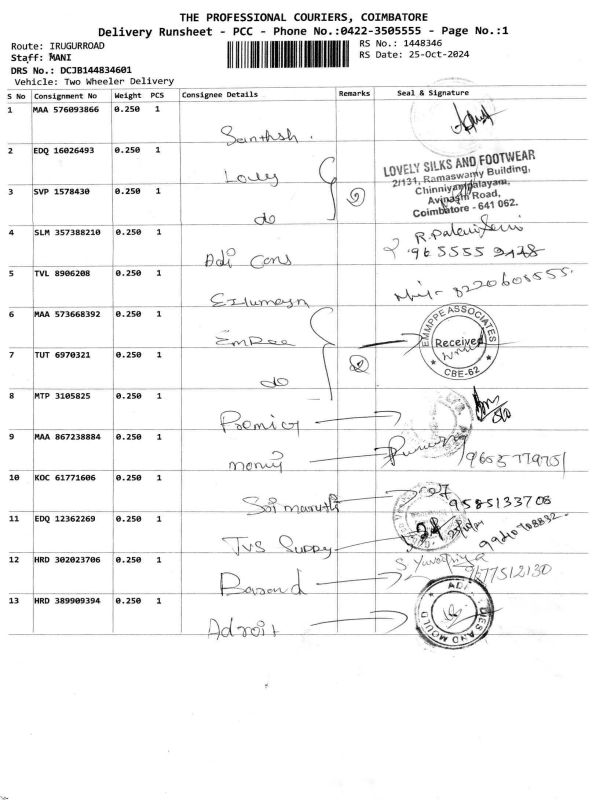 THE PROFESSIONAL COURIERS, COIMBATORE
Delivery Runsheet - PCC - Phone No.:0422-3505555 - Page No.:1
Route: IRUGURROAD
RS No.: 1448346
Staff: MANI
RS Date: 25-Oct-2024
DRS No.: DCJB144834601
Vehicle: Two Wheeler Delivery
S No Consignment No Weight PCS Consignee Details Remarks Seal & Signature
1 MAA 576093866 0.250 1
Santhsh.
2 EDQ 16026493 0.250 1
Lovely
LOVELY SILKS AND FOOTWEAR
2/131, Ramaswamy Building,
Chinniyampalayam,
Avinashi Road,
Coimbatore - 641 062.
3 SVP 1578430 0.250 1
do
2
4 SLM 357388210 0.250 1
Adi Cons
R. Palanisami
965555
5 TVL 8906208 0.250 1
8220608555.
6 MAA 573668392 0.250 1
EmPee
EMMPPE ASSOCIATES
Received
CBE-62
7 TUT 6970321 0.250 1
do
2
8 MTP 3105825 0.250 1
Premier
9 MAA 867238884 0.250 1
money
10 KOC 61771606 0.250 1
Sai maruthi
9585133708
11 EDQ 12362269 0.250 1
TVS Supply
12 HRD 302023706 0.250 1
9677512130
13 HRD 389909394 0.250 1
Adroit
DIES AND MOULD